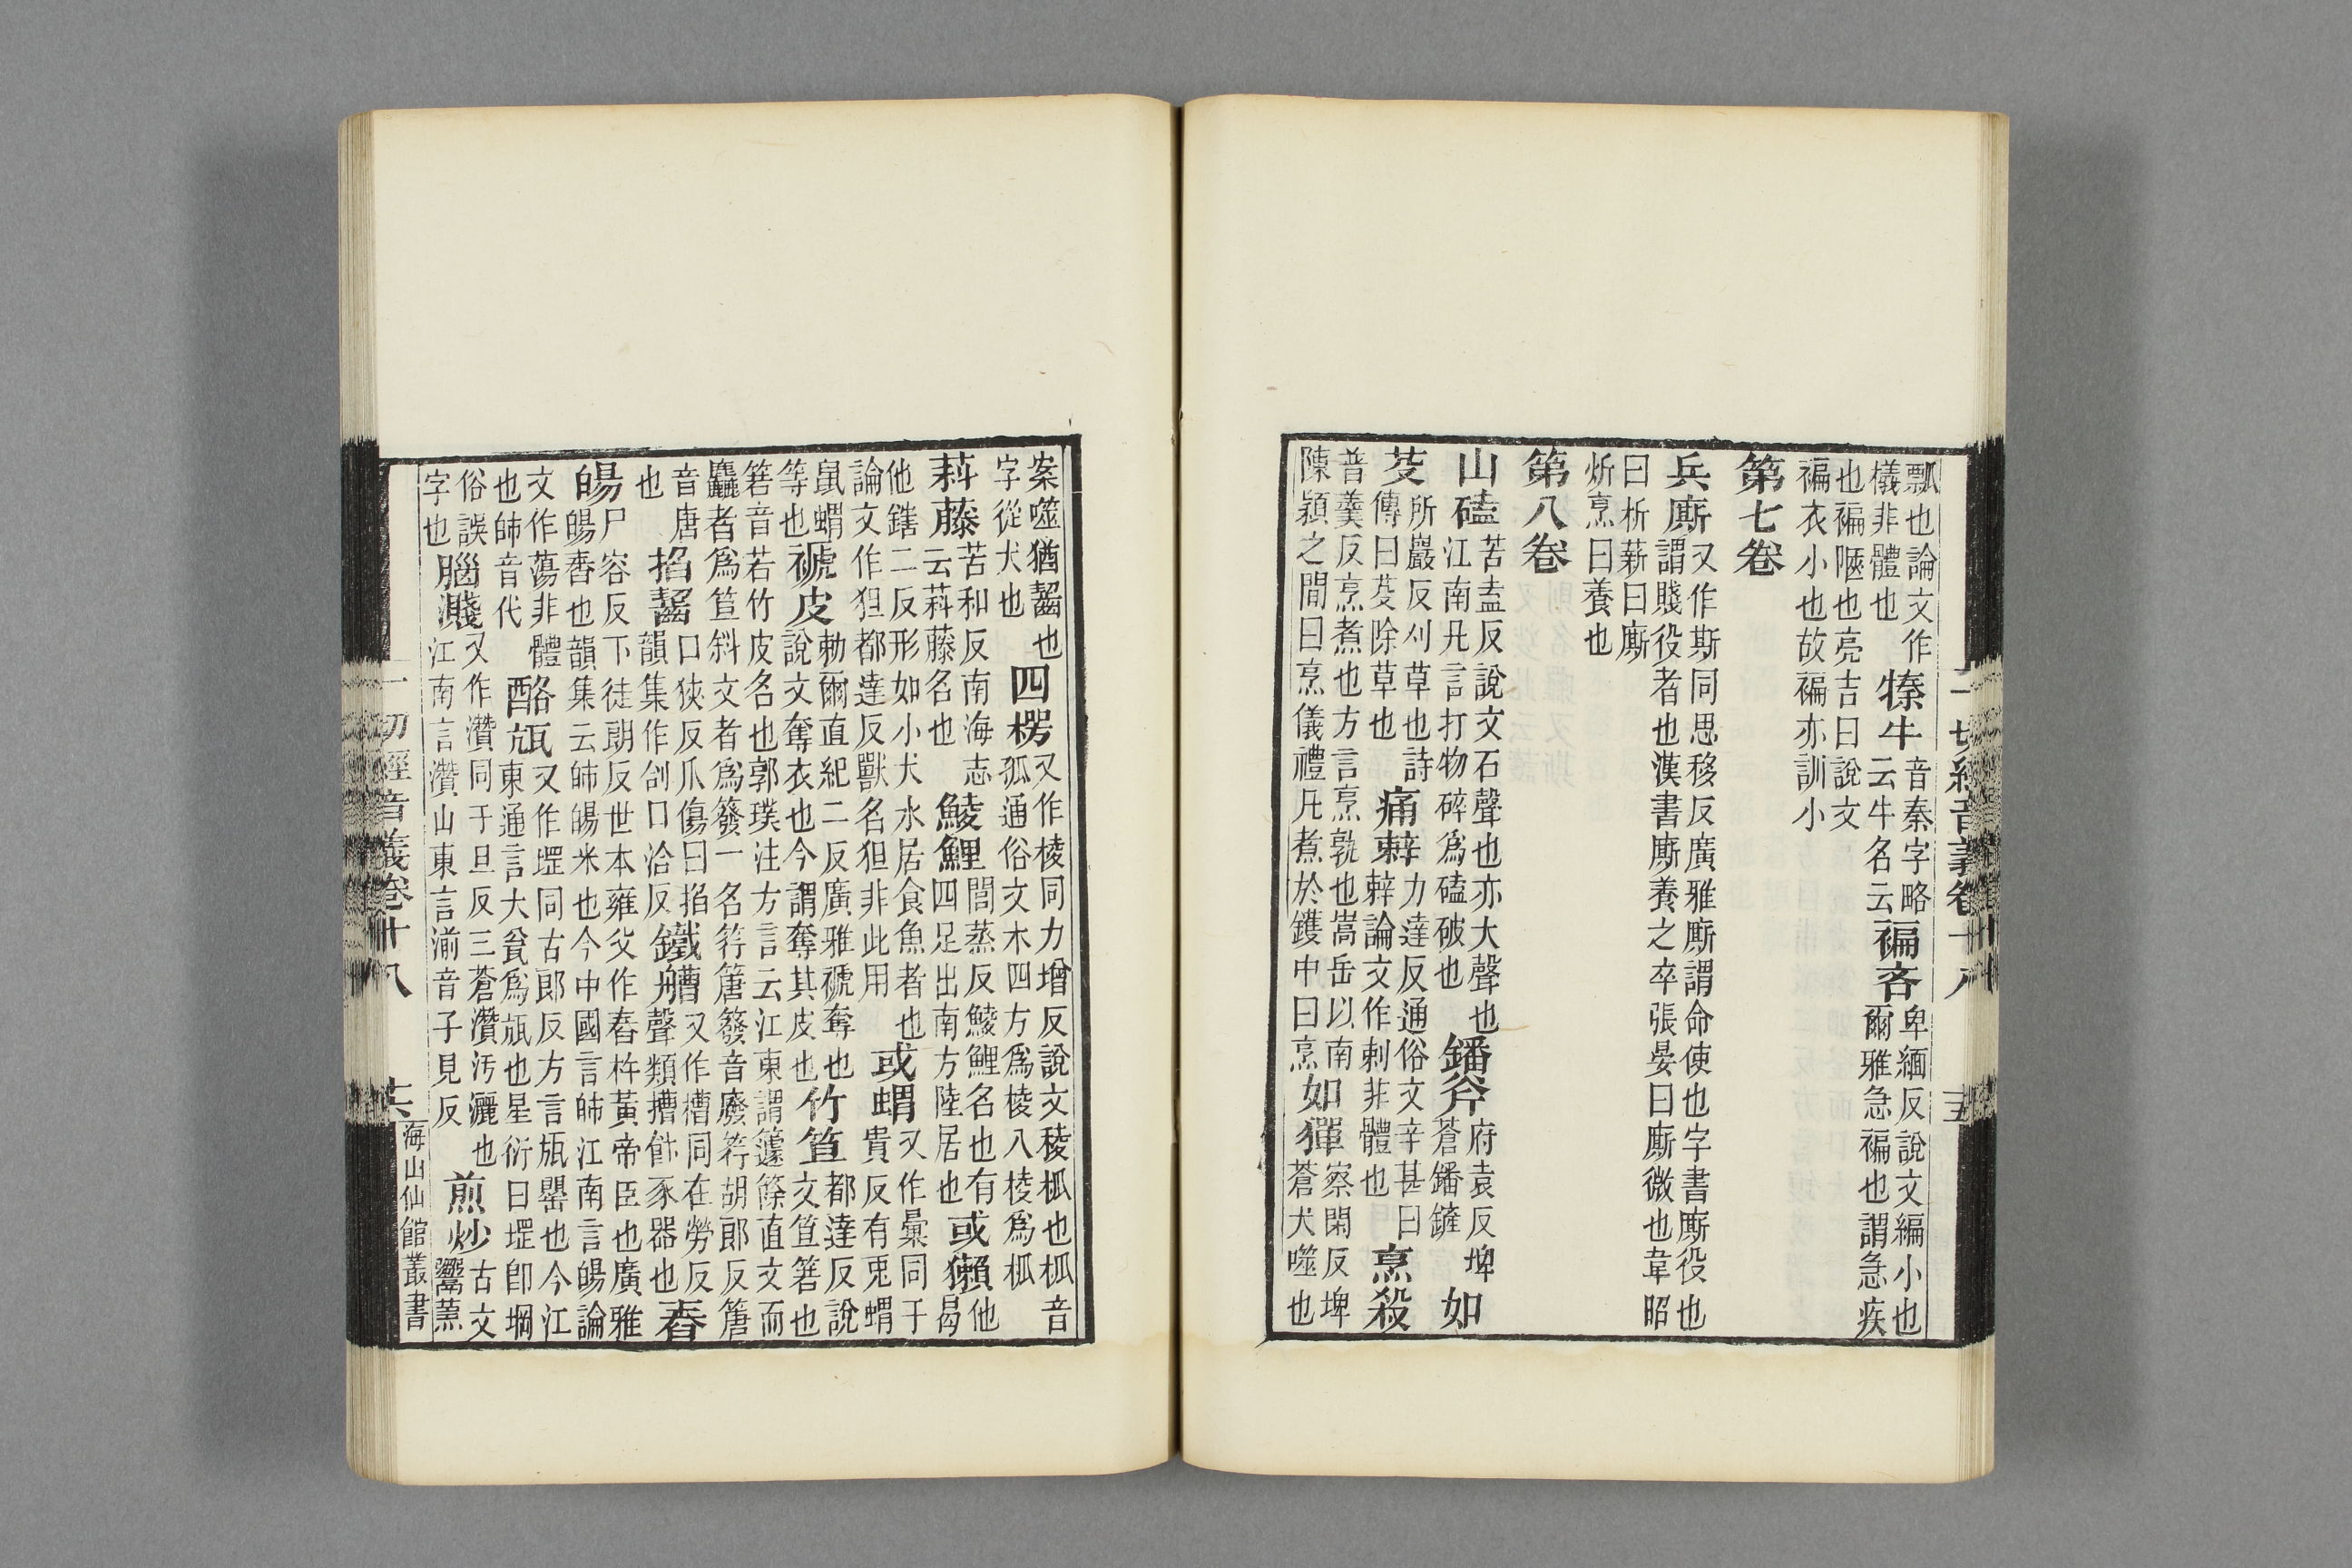 一切經音義卷十八 十五
瓢也論文作檥非體也 榛牛 音秦字略云牛名云 褊吝 卑緬反說文編小也爾雅急褊也謂急疾
也褊陿也亮吉曰說文褊衣小也故褊亦訓小
第七卷
兵廝 又作斯同思移反廣雅廝謂命使也字書廝役也謂賤役者也漢書廝養之卒張晏曰廝微也韋昭
曰析薪曰廝炘烹曰養也
第八卷
山磕 苦盍反說文石聲也亦大聲也江南凡言打物碎爲磕破也 鐇斧 府袁反埤蒼鐇鏟 如
芟 所巖反刈草也詩傳曰芟除草也 痛辢 力達反通俗文辛甚曰辢論文作剌非體也 烹殺
普羹反烹煮也方言烹孰也嵩岳以南陳潁之間曰烹儀禮凡煮於鑊中曰烹 如㺗 察閑反埤蒼犬噬也
案噬猶齧也字從犬也 四楞 又作棱同力增反說文稜柧也柧音孤通俗文木四方爲棱八棱爲柧
萪藤 苦和反南海志云萪藤名也 鯪鯉 閭蒸反鯪鯉名也有四足出南方陸居也 或獺 他曷
他鎋二反形如小犬水居食魚者也論文作狚都達反獸名狚非此用 或蝟 又作彙同于貴反有兎蝟
鼠蝟等也 褫皮 勅爾直紀二反廣雅褫奪也說文奪衣也今謂奪其皮也 竹笪 都達反說文笪箬也
箬音若竹皮名也郭璞注方言云江東謂籧篨直文而麤者爲笪斜文者爲簽一名筕篖簽音廢筕胡郎反篖
音唐也 掐齧 口狹反爪傷曰掐韻集作㓣口洽反 鐵艚 又作槽同在勞反聲類槽飤豕器也 舂
𤾉 尸容反下徒朗反世本雍父作舂杵黃帝臣也廣雅𤾉舂也韻集云師𤾉米也今中國言師江南言𤾉論
文作蕩非體也師音代 酪瓨 又作堽同古郎反方言瓨甖也今江東通言大瓮爲瓨也星衍曰堽卽堈
俗誤字也 腦濺 又作灒同于旦反三蒼灒汚灑也江南言灒山東言湔音子見反 煎炒 古文𩱦䰞
一切經音義卷十八 十六 海山仙館叢書